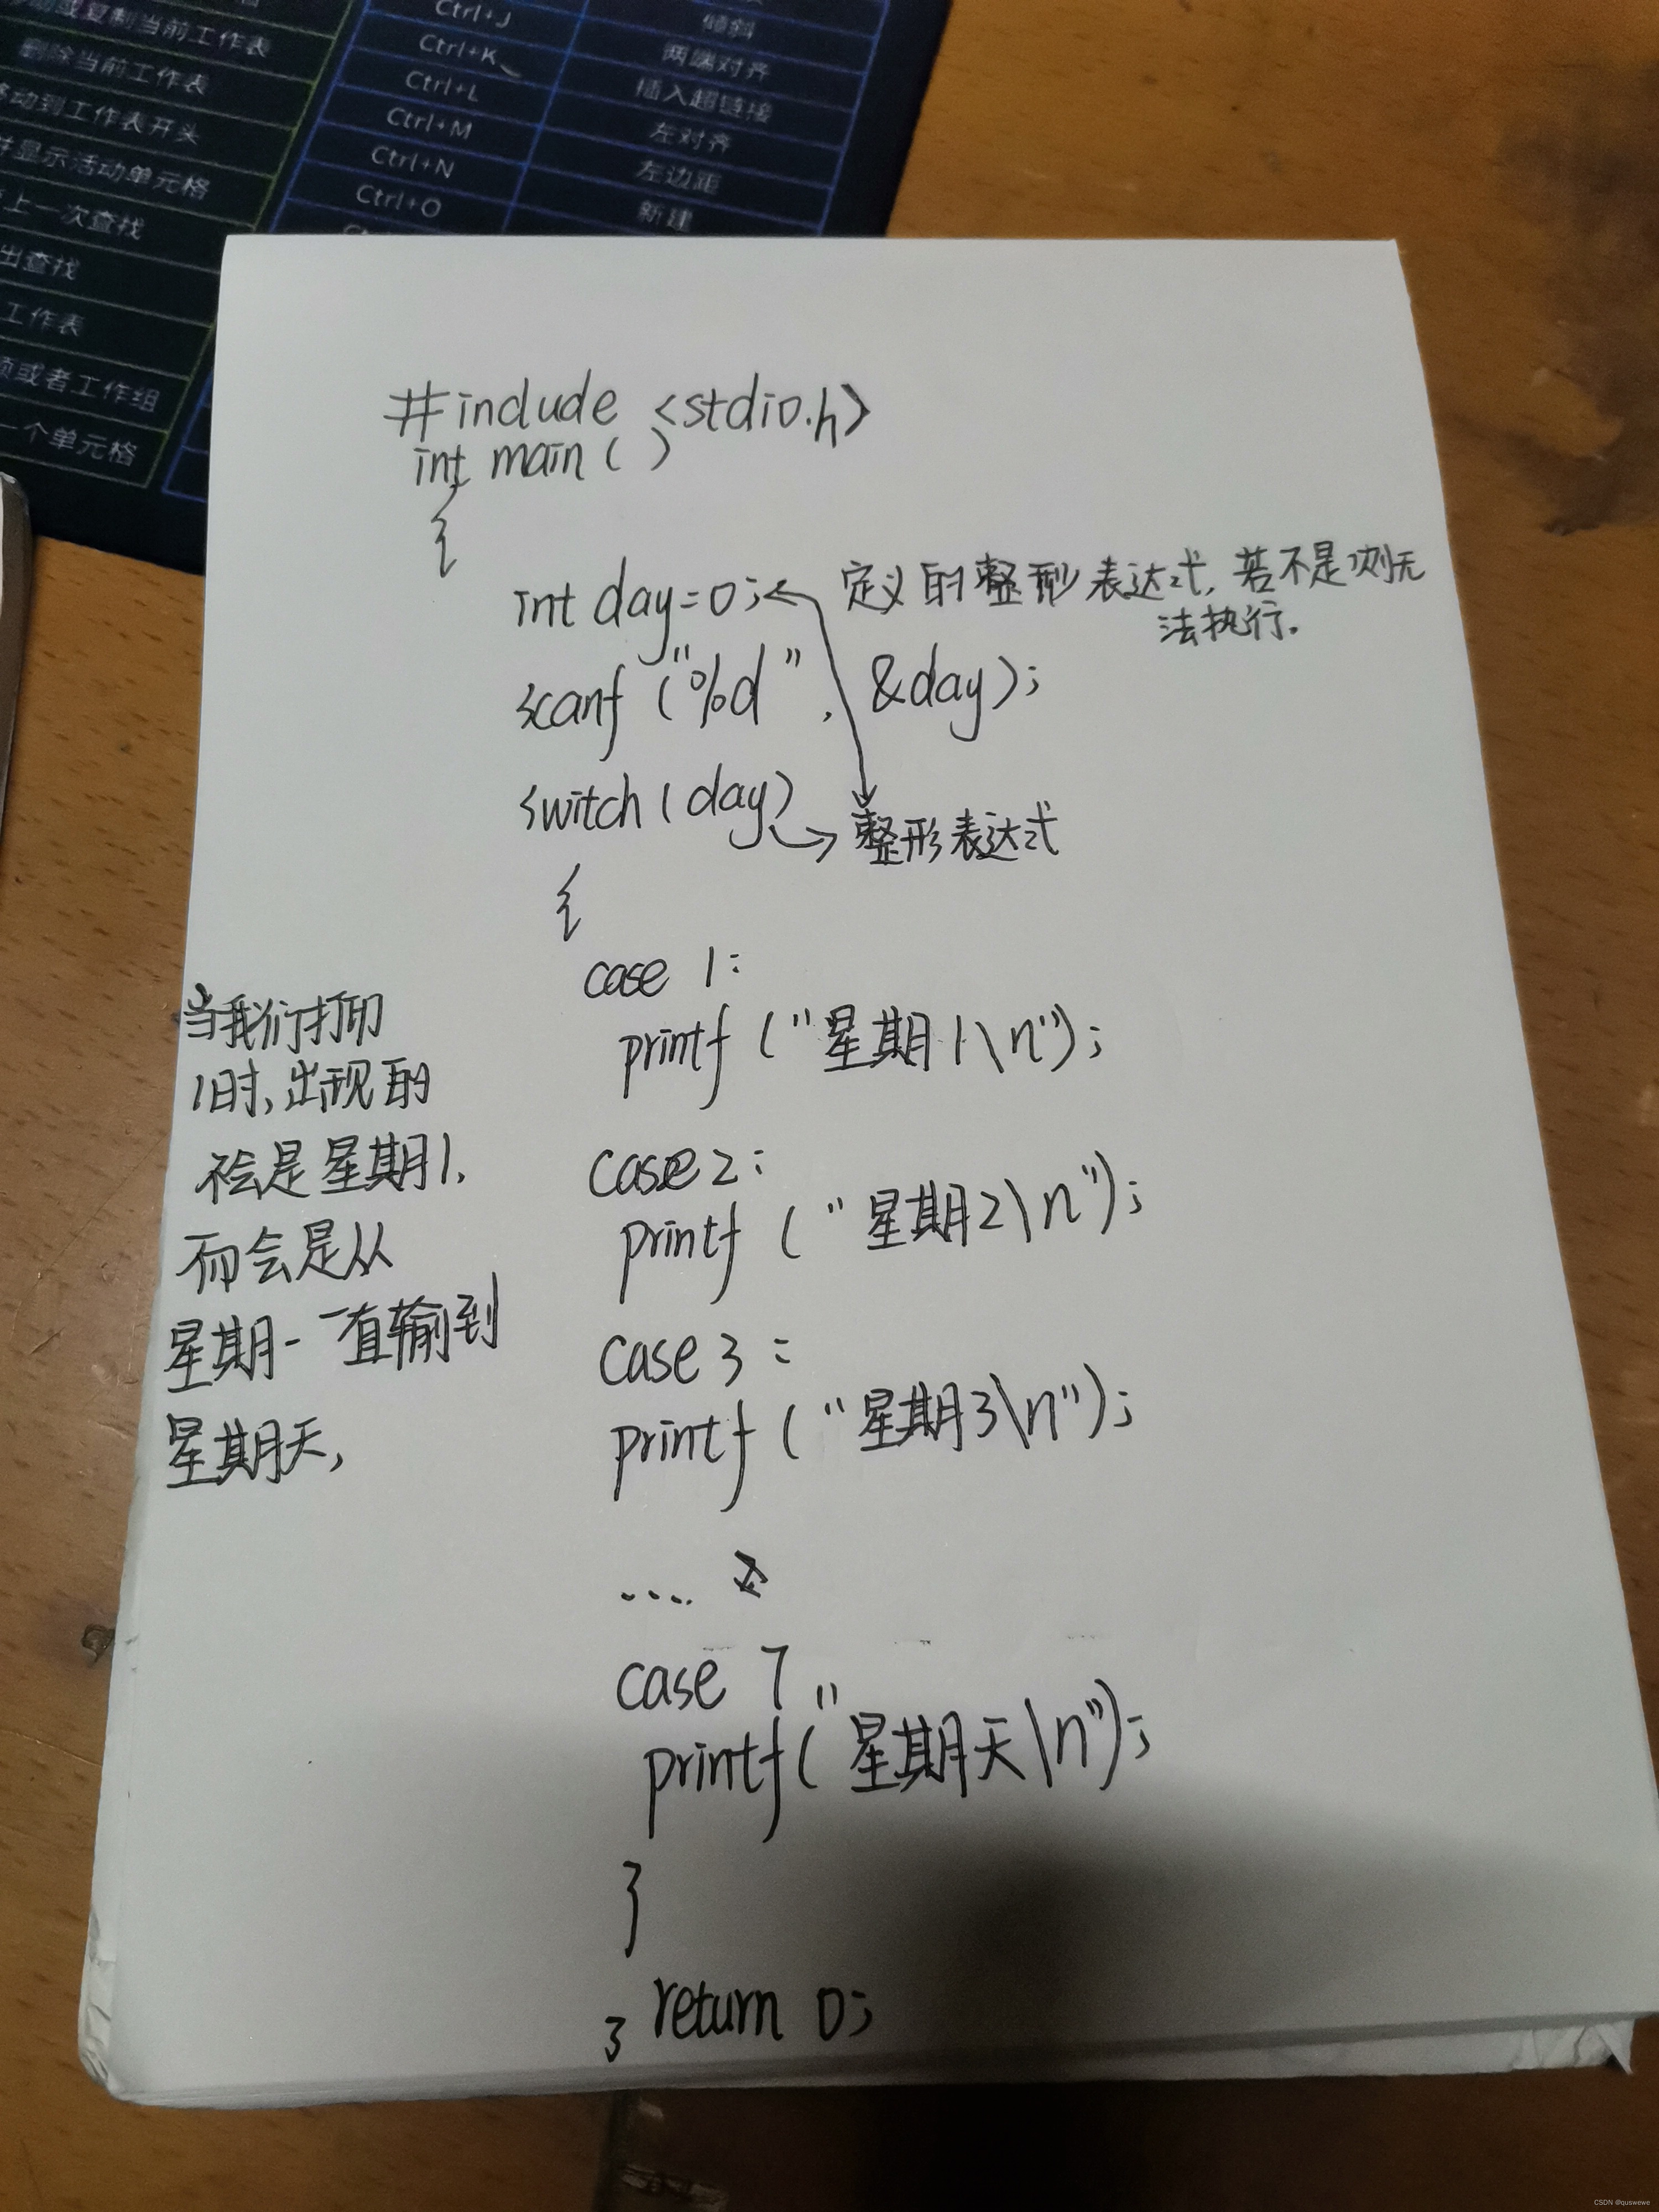 或复制当前工作表
删除当前工作表
移动到工作表开头
并显示活动单元格
上一次查找
出查找
工作表
项或者工作组
一个单元格
Ctrl+J
Ctrl+K
Ctrl+L
Ctrl+M
Ctrl+N
Ctrl+O
倾斜
两端对齐
插入超链接
左对齐
左边距
新建
#include <stdio.h>
int main ( )
{
int day=0; 定义的整型表达式,若不是,则无
法执行.
scanf ("%d", &day);
switch (day) 整形表达式
{
case 1:
printf ("星期1\n");
case 2:
printf ("星期2\n");
case 3:
printf ("星期3\n");
....
case 7
printf("星期天\n");
}
return 0;
}
当我们打印
1时,出现的
不会是星期1,
而会是从
星期一一直输到
星期天,
CSDN @quswewe